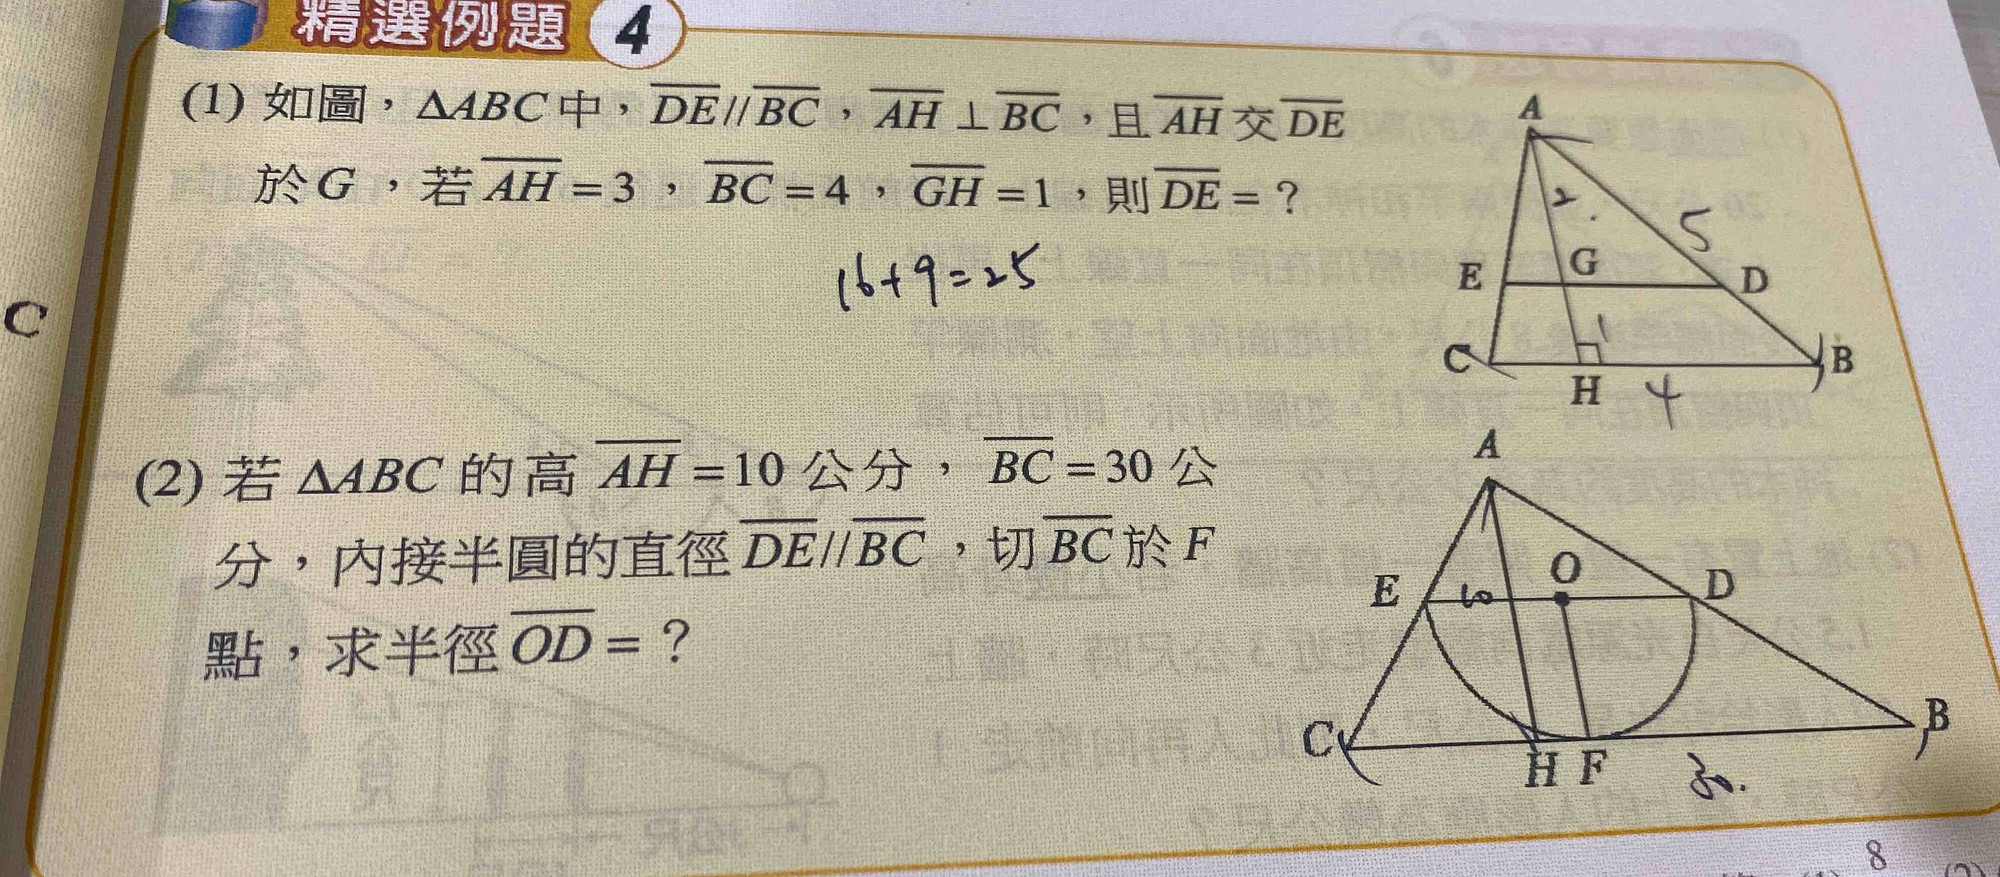 精選例題 4
(1) 如圖，ΔABC中，DE//BC，AH⊥BC，且AH交DE
於G，若AH=3，BC=4，GH=1，則DE=？
16+9=25
A
2.
5
E
G
D
1
C
H
4
B
C
(2) 若ΔABC的高AH=10公分，BC=30公
分，內接半圓的直徑DE//BC，切BC於F
點，求半徑OD=？
A
E
10
O
D
C
H
F
30.
B
8